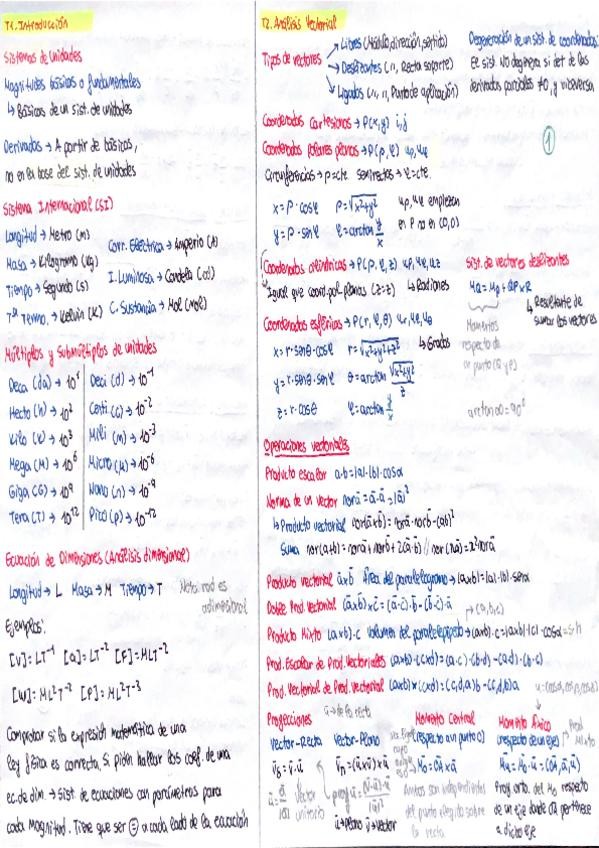 T1. Introducción
Sistemas de Unidades
Magnitudes básicas o fundamentales
↳ Básicas de un sist. de unidades
Derivadas → A partir de básicas,
no en la base del sist. de unidades
Sistema Internacional (SI)
Longitud → Metro (m)
Masa → Kilogramo (kg)
Tiempo → Segundo (s)
Tª Termo. → Kelvin (K)
Corr. Eléctrica → Amperio (A)
I. Luminosa → Candela (cd)
C. Sustancia → Mol (mol)
Múltiplos y Submúltiplos de unidades
Deca (da) → 10¹ Deci (d) → 10⁻¹
Hecto (h) → 10² Centi (c) → 10⁻²
Kilo (k) → 10³ Mili (m) → 10⁻³
Mega (M) → 10⁶ Micro (μ) → 10⁻⁶
Giga (G) → 10⁹ Nano (n) → 10⁻⁹
Tera (T) → 10¹² Pico (p) → 10⁻¹²
Ecuación de Dimensiones (Análisis dimensional)
Longitud → L Masa → M Tiempo → T
Nota: rad es
adimensional
Ejemplos:
[v] = LT⁻¹ [a] = LT⁻² [F] = MLT⁻²
[W] = ML²T⁻² [P] = ML²T⁻³
Comprobar si la expresión matemática de una
ley física es correcta, si piden hallar los coef. de una
ec. de dim. → sist. de ecuaciones con parámetros para
cada magnitud. Tiene que ser = a cada lado de la ecuación
T2. Análisis Vectorial
Tipos de vectores
Libres (Módulo, dirección, sentido)
Deslizantes (", ", Recta soporte)
Ligados (", ", Punto de aplicación)
Degeneración de un sist. de coordenadas:
El sist. No degenera si det de las
derivadas parciales ≠0, y viceversa
1
Coordenadas Cartesianas → P(x,y) i,j
Coordenadas polares planas → P(ρ,φ) uρ,uφ
Circunferencias → ρ=cte Semirrectas → φ=cte.
x = ρ·cosφ ρ = √x²+y²
y = ρ·senφ φ = arctan y/x
uρ, uφ empiezan
en P no en (0,0)
Coordenadas cilíndricas → P(ρ,φ,z) uρ,uφ,uz
Igual que coord. pol. planas (z=z) ↳ Radianes
Coordenadas esféricas → P(r,φ,θ) ur,uφ,uθ
↳ Grados
x = r·senθ·cosφ r = √x²+y²+z²
y = r·senθ·senφ θ = arctan √x²+y²/z
z = r·cosθ φ = arctan y/x
Sist. de vectores deslizantes
↳ Resultante de
sumar los vectores
Momentos
respecto de
un punto (Q y P)
arctan∞ = 90°
Operaciones vectoriales
Producto escalar a·b = |a|·|b|·cosα
Norma de un vector nor ā = ā·ā = |ā|²
↳ Producto vectorial nor(āxb̄) = nor ā·nor b̄ - (ab)²
Suma nor(a+b) = nor ā + nor b̄ + 2(ā·b̄) // nor(λā) = λ² nor ā
Producto vectorial āxb̄ Área del paralelogramo → |axb| = |a|·|b|·senα
Doble Prod. vectorial (āxb̄)xc̄ = (ā·c̄)·b̄ - (b̄·c̄)·ā
Producto Mixto (axb)·c Volumen del paralelepípedo → (axb)·c = |axb|·|c|·cosα = S·h
(a,b,c)
Prod. Escalar de Prod. Vectoriales (axb)·(cxd) = (a·c)·(b·d) - (a·d)·(b·c)
Prod. Vectorial de Prod. Vectorial (axb)x(cxd) = (c,d,a)b - (c,d,b)a
Proyecciones
ū → de la recta
Vector-Recta
Vector-Plano
vector
unitario
ū → plano v̄ → vector
Momento Central
(respecto a un punto O)
M̄o = OA x ā
Ambos son independientes
del punto elegido sobre
la recta
Momento Áxico
(respecto de un eje)
Prod.
Mixto
M̄u = M̄o·ū = (OA,ā,ū)
Proy. orto. del Mo respecto
de un eje donde OA pertenece
a dicho eje